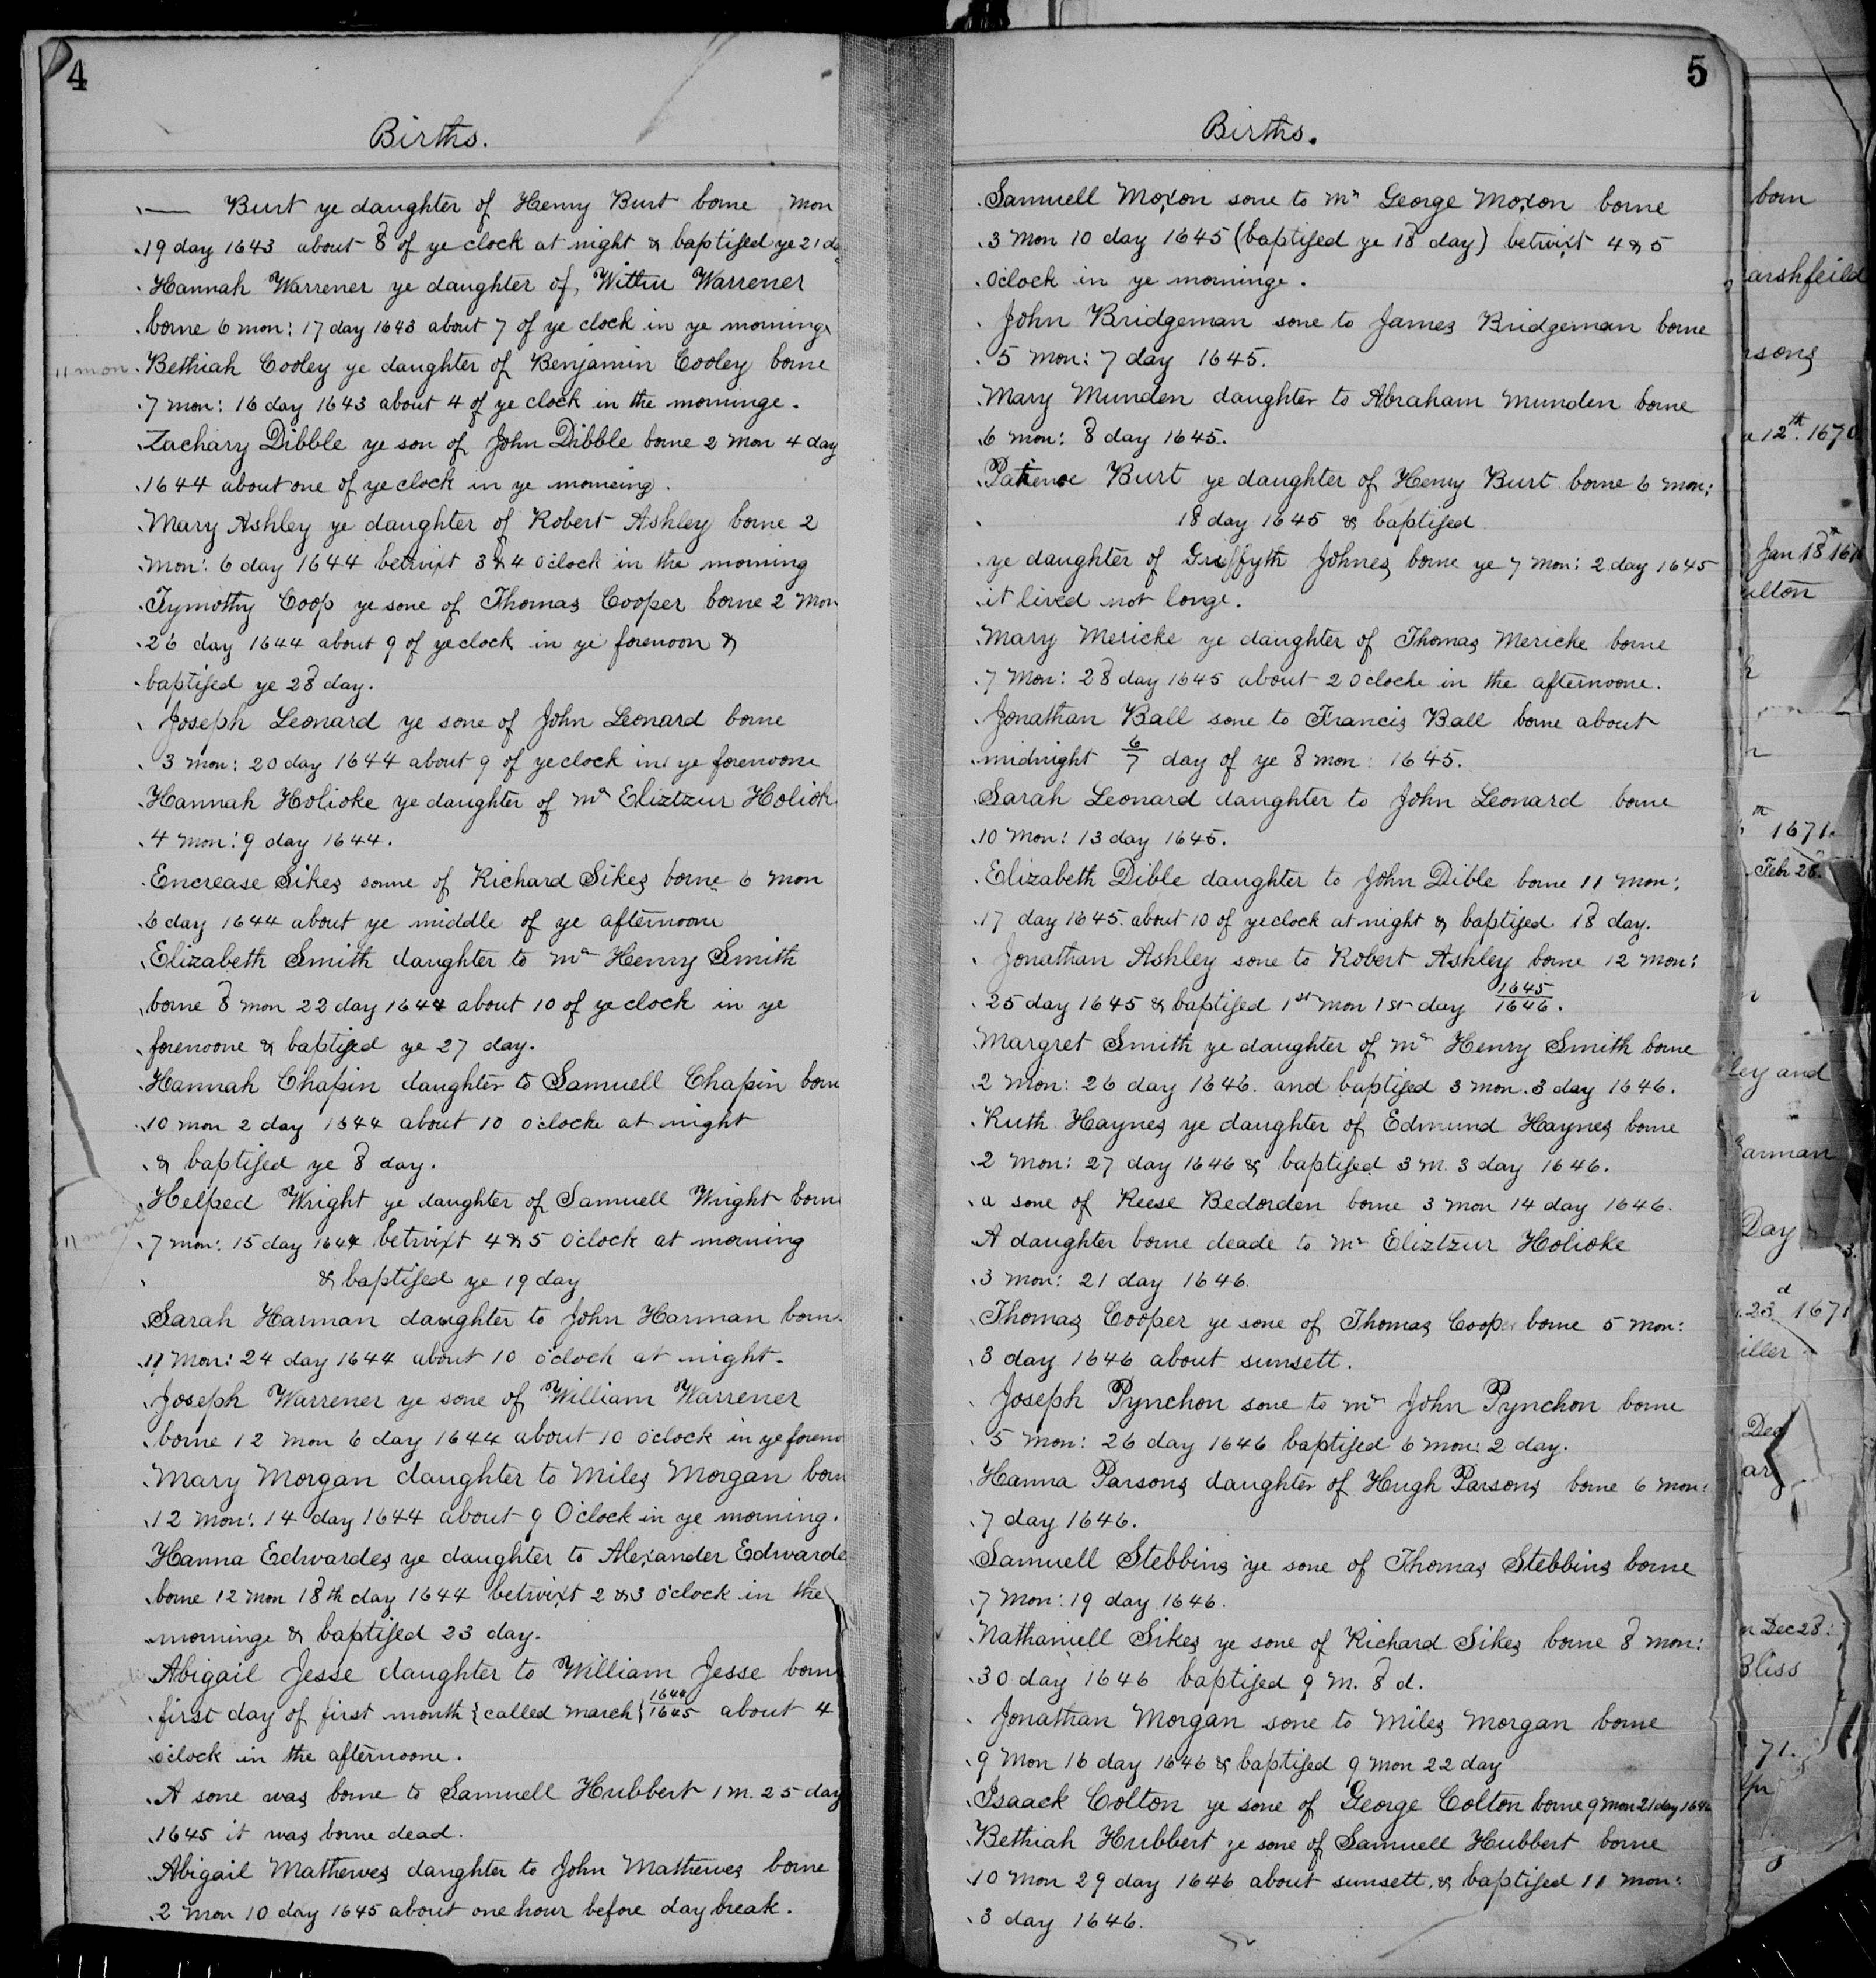 4
Births.
— Burt ye daughter of Henry Burt borne mon
19 day 1643 about 8 of ye clock at night & baptised ye 21 da
Hannah Warrener ye daughter of Warrener
borne 6 mon: 17 day 1643 about 7 of ye clock in ye morninge
11 mon. Bethiah Cooley ye daughter of Benjamin Cooley borne
7 mon: 16 day 1643 about 4 of ye clock in the morninge.
Zachary Dibble ye son of John Dibble borne 2 mon 4 day
1644 about one of ye clock in ye morneing.
Mary Ashley ye daughter of Robert Ashley borne 2
mon: 6 day 1644 betwixt 3 & 4 o'clock in the morning
Tymothy Coop ye sone of Thomas Cooper borne 2 mon
26 day 1644 about 9 of ye clock in ye forenoon &
baptised ye 28 day.
Joseph Leonard ye sone of John Leonard borne
3 mon: 20 day 1644 about 9 of ye clock in ye forenoone
Hannah Holioke ye daughter of mr Eliztzur Holiok
4 mon: 9 day 1644.
Encrease Sikes sonne of Richard Sikes borne 6 mon
6 day 1644 about ye middle of ye afternoone
Elizabeth Smith daughter to mr Henry Smith
borne 8 mon 22 day 1644 about 10 of ye clock in ye
forenoone & baptised ye 27 day.
Hannah Chapin daughter to Samuell Chapin born
10 mon 2 day 1644 about 10 o'clocke at night
& baptised ye 8 day.
Helped Wright ye daughter of Samuell Wright born
11 mon 7 mon: 15 day 1644 betwixt 4 & 5 o'clock at morning
& baptised ye 19 day
Sarah Harman daughter to John Harman borne
11 mon: 24 day 1644 about 10 o'clock at night.
Joseph Warrener ye sone of William Warrener
borne 12 mon 6 day 1644 about 10 o'clock in ye foreno
Mary Morgan daughter to Miles Morgan born
12 mon: 14 day 1644 about 9 O'clock in ye morning.
Hanna Edwardes ye daughter to Alexander Edwarde
borne 12 mon 18th day 1644 betwixt 2 & 3 o'clock in the
morninge & baptised 23 day.
Abigail Jesse daughter to William Jesse born
first day of first month {called march} 1644/1645 about 4
o'clock in the afternoone.
A sone was borne to Samuell Hubbert 1 m. 25 day
1645 it was borne dead.
Abigail Mathewes daughter to John Mathewes borne
2 mon 10 day 1645 about one hour before day break.
5
Births.
Samuell Moxon sone to mr George Moxon borne
3 mon 10 day 1645 (baptised ye 18 day) betwixt 4 & 5
o'clock in ye morninge.
John Bridgeman sone to James Bridgeman borne
5 mon: 7 day 1645.
Mary Munden daughter to Abraham Munden borne
6 mon: 8 day 1645.
Patience Burt ye daughter of Henry Burt borne 6 mon:
18 day 1645 & baptised
ye daughter of Griffyth Johnes borne ye 7 mon: 2 day 1645
it lived not longe.
Mary Mericke ye daughter of Thomas Mericke borne
7 mon: 28 day 1645 about 2 o'clocke in the afternoone.
Jonathan Ball sone to Francis Ball borne about
midnight 6/7 day of ye 8 mon: 1645.
Sarah Leonard daughter to John Leonard borne
10 mon: 13 day 1645.
Elizabeth Dible daughter to John Dible borne 11 mon:
17 day 1645. about 10 of ye clock at night & baptised 18 day.
Jonathan Ashley sone to Robert Ashley borne 12 mon:
25 day 1645 & baptised 1st mon 1st day 1645/1646.
Margret Smith ye daughter of mr Henry Smith borne
2 mon: 26 day 1646. and baptised 3 mon. 3 day 1646.
Ruth Haynes ye daughter of Edmund Haynes borne
2 mon: 27 day 1646 & baptised 3 m. 3 day 1646.
a sone of Reese Bedorden borne 3 mon 14 day 1646.
A daughter borne deade to mr Eliztzur Holioke
3 mon: 21 day 1646.
Thomas Cooper ye sone of Thomas Cooper borne 5 mon:
3 day 1646 about sunsett.
Joseph Pynchon sone to mr John Pynchon borne
5 mon: 26 day 1646 baptised 6 mon: 2 day.
Hanna Parsons daughter of Hugh Parsons borne 6 mon:
7 day 1646.
Samuell Stebbins ye sone of Thomas Stebbins borne
7 mon: 19 day 1646.
Nathaniell Sikes ye sone of Richard Sikes borne 8 mon:
30 day 1646 baptised 9 m. 8 d.
Jonathan Morgan sone to Miles Morgan borne
9 mon 16 day 1646 & baptised 9 mon 22 day
Isaack Colton ye sone of George Colton borne 9 mon 21 day 1646
Bethiah Hubbert ye sone of Samuell Hubbert borne
10 mon 29 day 1646 about sunsett. & baptised 11 mon:
3 day 1646.
born
arshfeild
rsons
12th. 1670
Jan 18th 167
ulton
th 1671.
Feb 28.
ley and
arman
Day
23d 1671
iller
Dec
ar
n Dec 28:
Bliss
71.